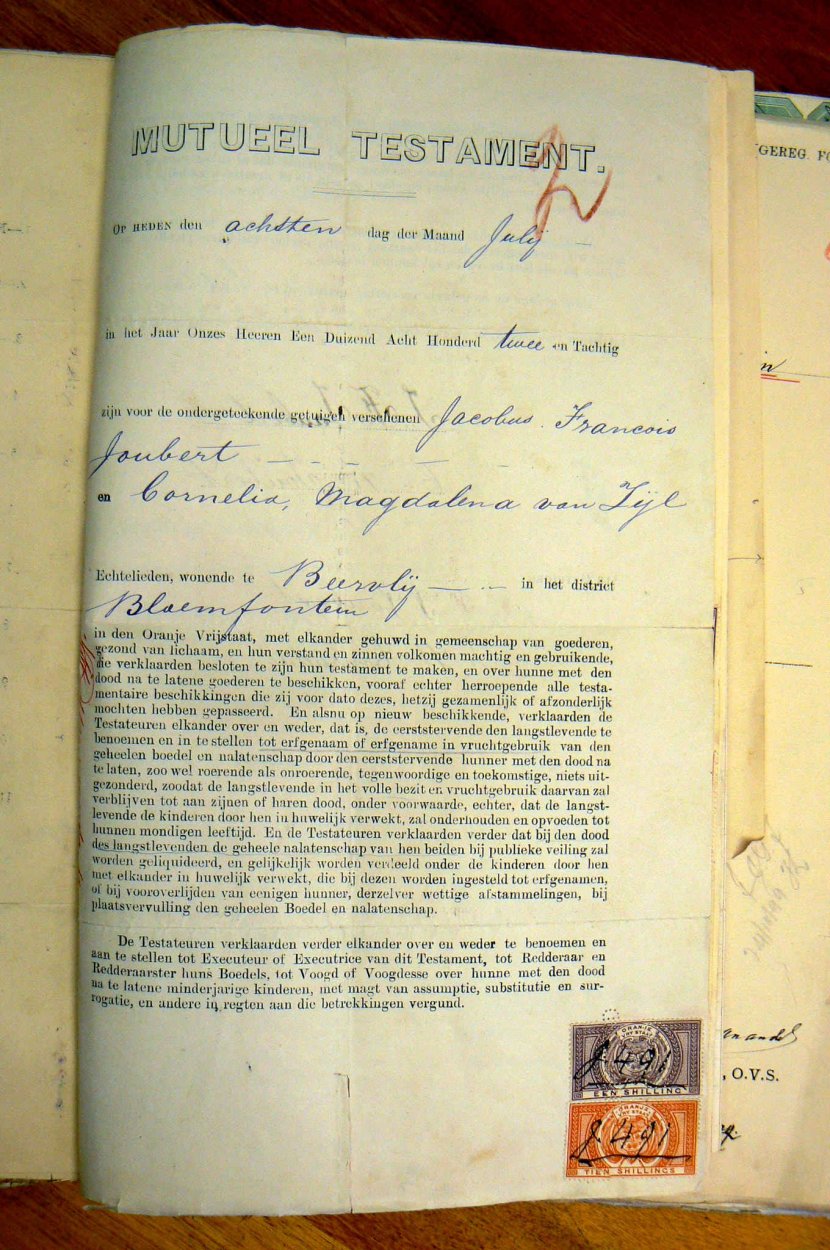 MUTUEEL TESTAMENT.
OP HEDEN den achtsten dag der Maand Julij
in het Jaar Onzes Heeren Een Duizend Acht Honderd twee en Tachtig
zijn voor de ondergeteekende getuigen verschenen Jacobus Francois
Joubert
en Cornelia, Magdalena van Zijl
Echtelieden, wonende te Beervlij in het district
Bloemfontein
in den Oranje Vrijstaat, met elkander gehuwd in gemeenschap van goederen,
gezond van lichaam, en hun verstand en zinnen volkomen machtig en gebruikende,
die verklaarden besloten te zijn hun testament te maken, en over hunne met den
dood na te latene goederen te beschikken, vooraf echter herroepende alle testa-
mentaire beschikkingen die zij voor dato dezes, hetzij gezamenlijk of afzonderlijk
mochten hebben gepasseerd. En alsnu op nieuw beschikkende, verklaarden de
Testateuren elkander over en weder, dat is, de eerststervende den langstlevende te
benoemen en in te stellen tot erfgenaam of erfgename in vruchtgebruik van den
geheelen boedel en nalatenschap door den eerststervende hunner met den dood na
te laten, zoo wel roerende als onroerende, tegenwoordige en toekomstige, niets uit-
gezonderd, zoodat de langstlevende in het volle bezit en vruchtgebruik daarvan zal
verblijven tot aan zijnen of haren dood, onder voorwaarde, echter, dat de langst-
levende de kinderen door hen in huwelijk verwekt, zal onderhouden en opvoeden tot
hunnen mondigen leeftijd. En de Testateuren verklaarden verder dat bij den dood
des langstlevenden de geheele nalatenschap van hen beiden bij publieke veiling zal
worden geliquideerd, en gelijkelijk worden verdeeld onder de kinderen door hen
met elkander in huwelijk verwekt, die bij dezen worden ingesteld tot erfgenamen,
of bij vooroverlijden van eenigen hunner, derzelver wettige afstammelingen, bij
plaatsvervulling den geheelen Boedel en nalatenschap.
De Testateuren verklaarden verder elkander over en weder te benoemen en
aan te stellen tot Executeur of Executrice van dit Testament, tot Redderaar en
Redderaarster huns Boedels, tot Voogd of Voogdesse over hunne met den dood
na te latene minderjarige kinderen, met magt van assumptie, substitutie en sur-
rogatie, en andere in regten aan die betrekkingen vergund.
ORANJE
VRY STAAT
491
EEN SHILLING
ORANJE
VRY STAAT
491
TIEN SHILLINGS
GEREG.
, O.V.S.